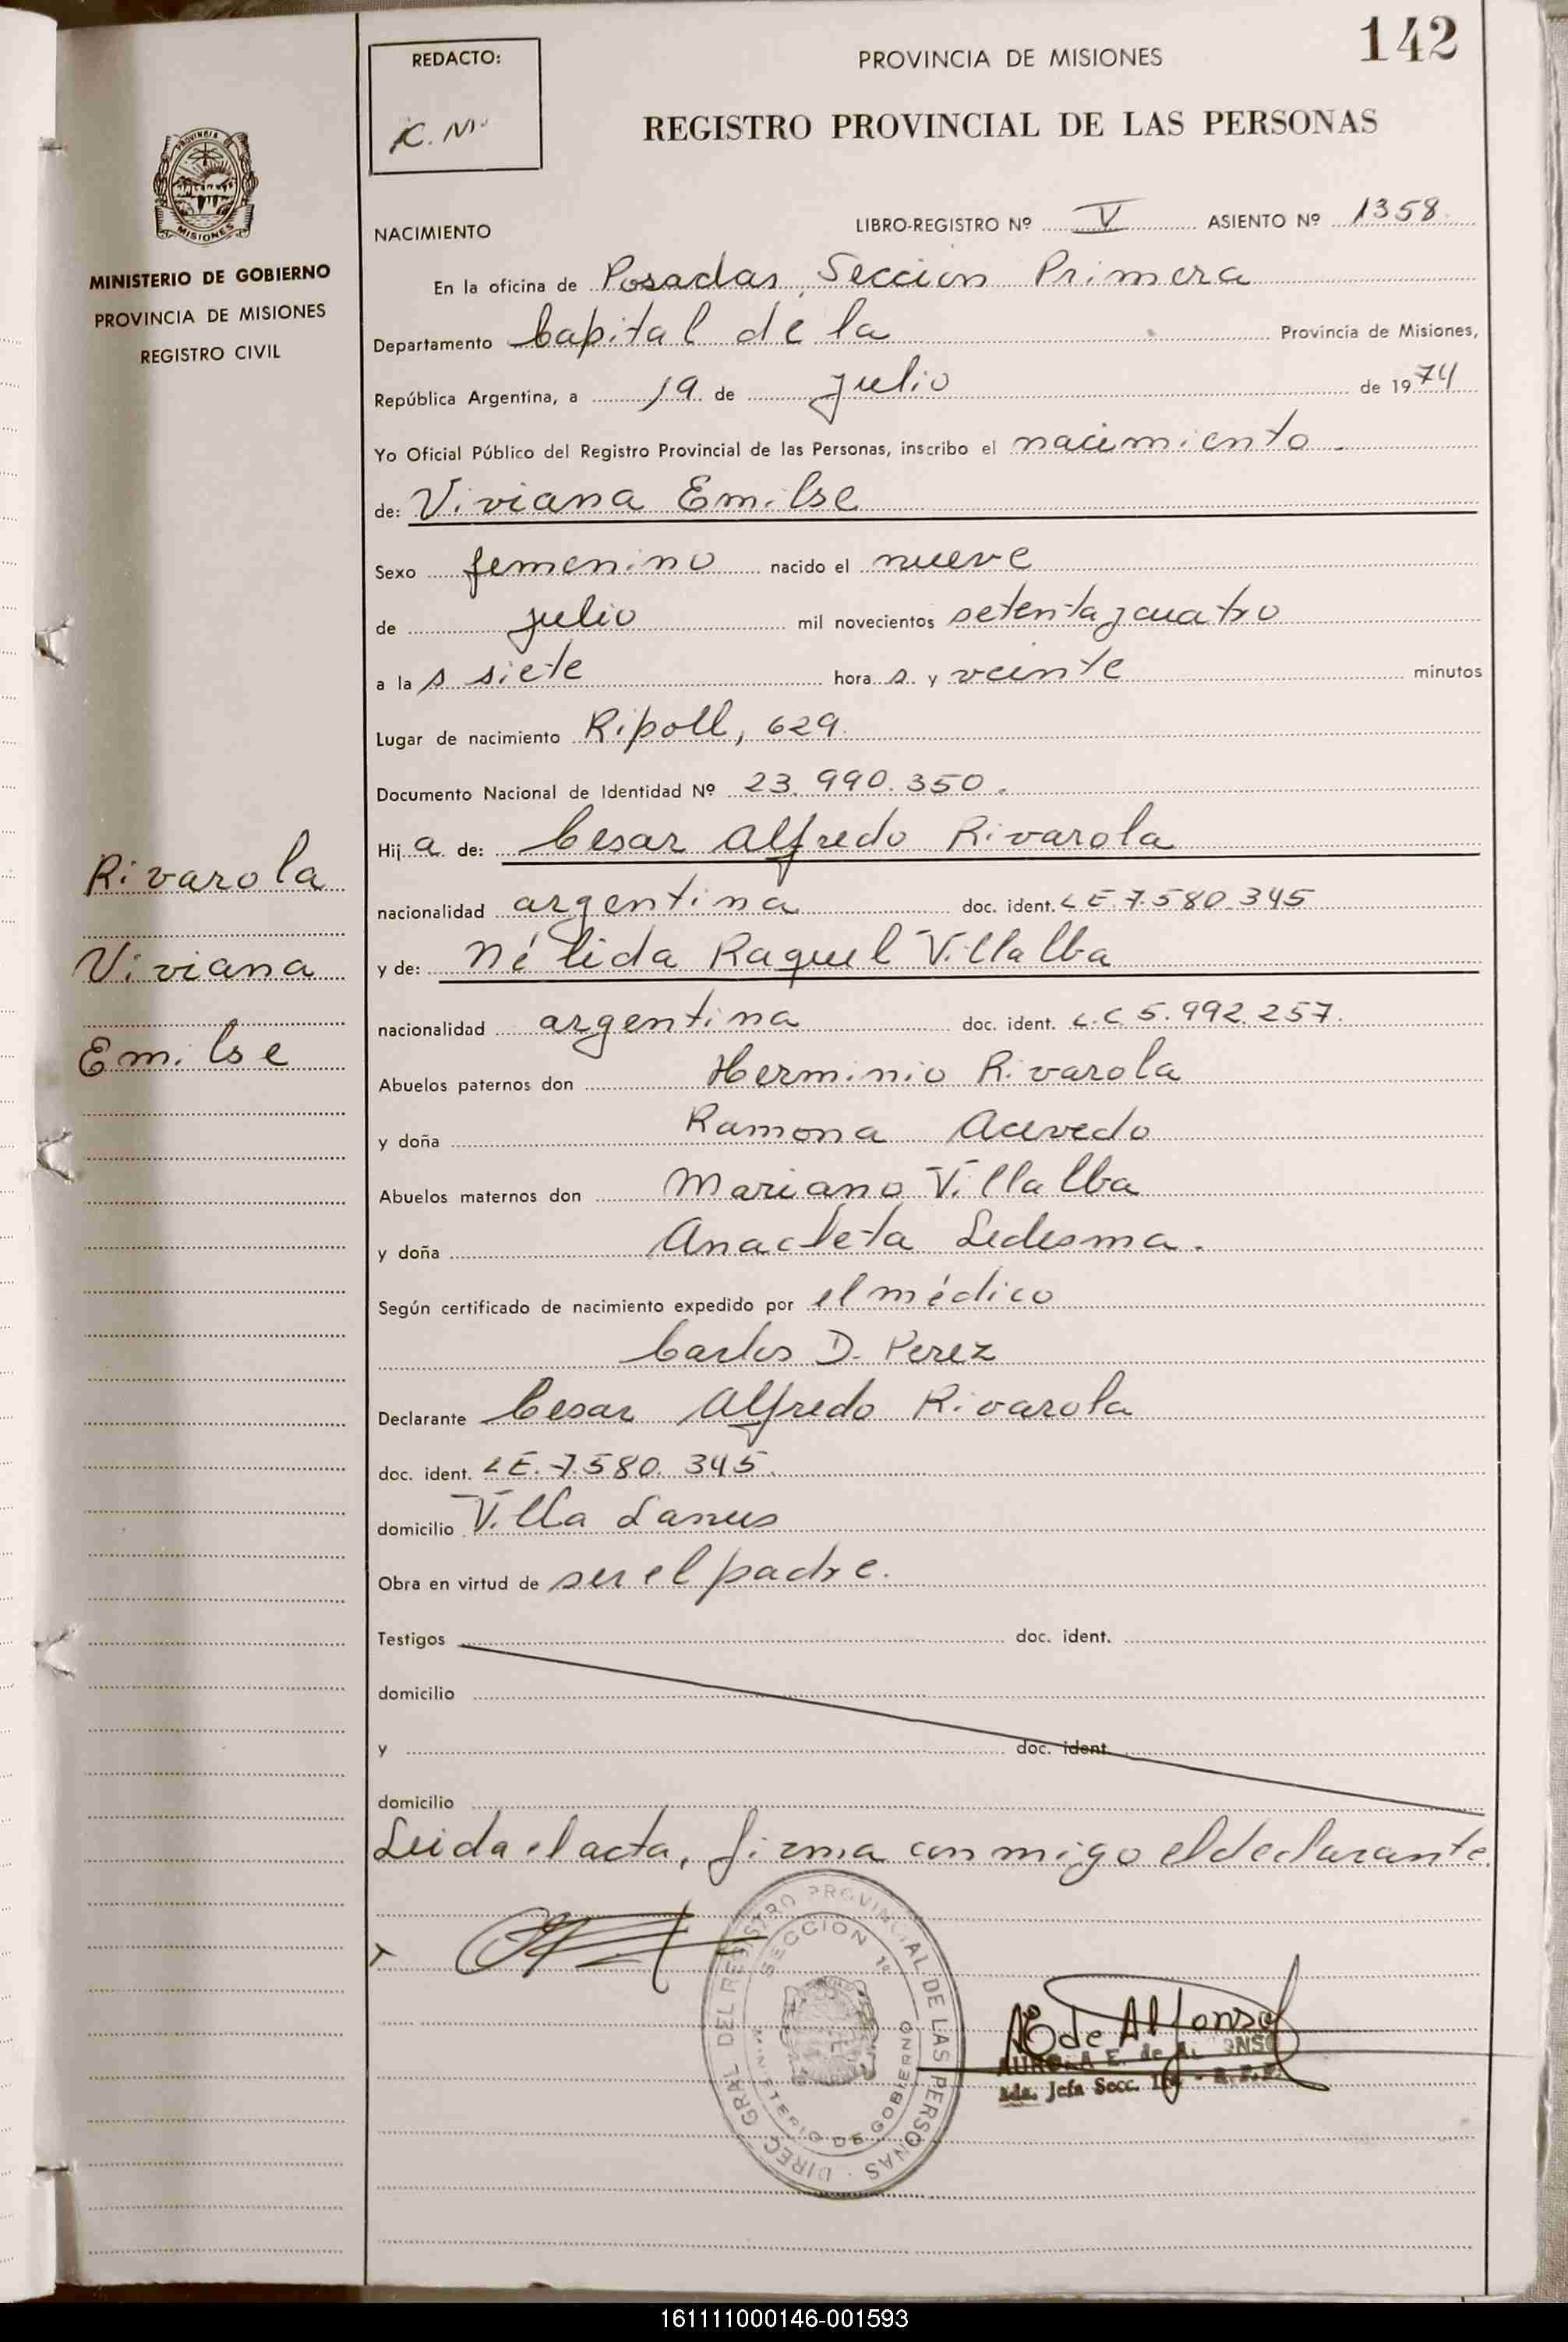 142
REDACTO:
C. M.
PROVINCIA DE MISIONES
REGISTRO PROVINCIAL DE LAS PERSONAS
PROVINCIA
MISIONES
MINISTERIO DE GOBIERNO
PROVINCIA DE MISIONES
REGISTRO CIVIL
Rivarola
Viviana
Emilse
NACIMIENTO LIBRO-REGISTRO Nº V ASIENTO Nº 1358
En la oficina de Posadas, Seccion Primera
Departamento Capital de la Provincia de Misiones,
República Argentina, a 19 de julio de 1974
Yo Oficial Público del Registro Provincial de las Personas, inscribo el nacimiento
de: Viviana Emilse
Sexo femenino nacido el nueve
de julio mil novecientos setenta y cuatro
a la s siete hora s y veinte minutos
Lugar de nacimiento Ripoll, 629
Documento Nacional de Identidad Nº 23.990.350.
Hij a de: Cesar Alfredo Rivarola
nacionalidad argentina doc. ident. L E. 7.580.345
y de: Nélida Raquel Villalba
nacionalidad argentina doc. ident. L.C 5.992.257.
Abuelos paternos don Herminio Rivarola
y doña Ramona Acevedo
Abuelos maternos don Mariano Villalba
y doña Anacleta Ledesma.
Según certificado de nacimiento expedido por el médico
Carlos D. Perez
Declarante Cesar Alfredo Rivarola
doc. ident. L E. 7.580.345.
domicilio Villa Lanus
Obra en virtud de ser el padre.
Testigos doc. ident.
domicilio
y doc. ident.
domicilio
Leida el acta, firma conmigo el declarante.
DIREC. GRAL. DEL REGISTRO PROVINCIAL DE LAS PERSONAS
SECCION 1ª
MINISTERIO DE GOBIERNO
AE de Alfonso
E. de
Jefa Secc.
161111000146-001593